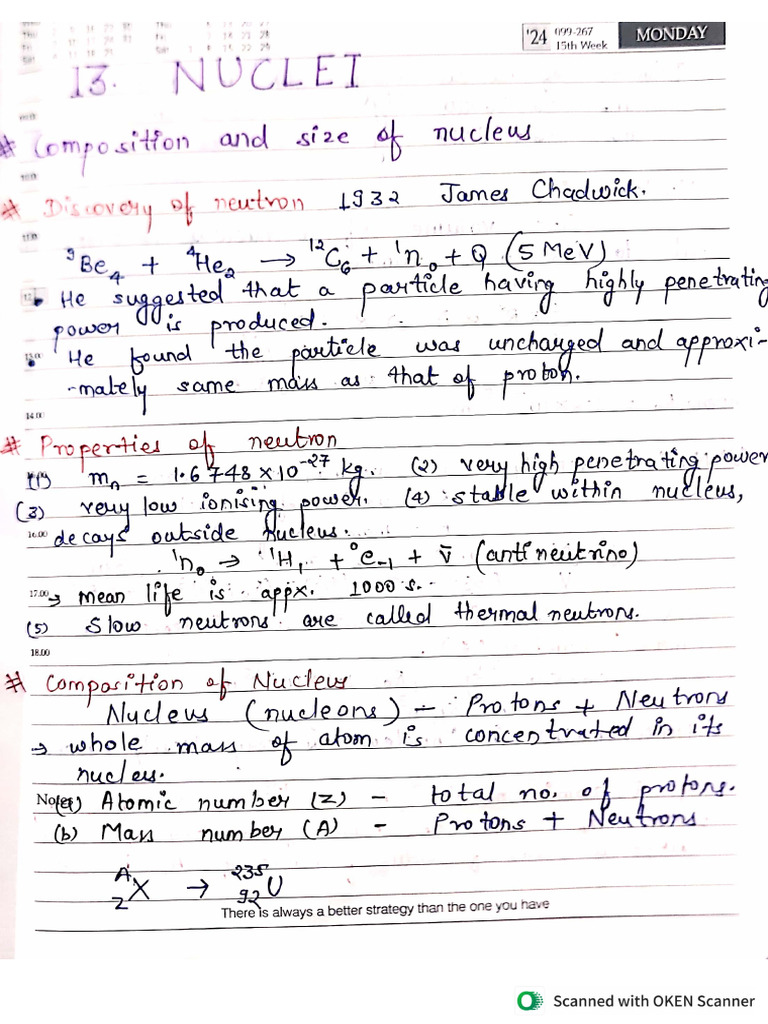 '24 099-267 15th Week MONDAY
13. NUCLEI
# Composition and size of nucleus
# Discovery of neutron 1932 James Chadwick.
11.00
⁹Be₄ + ⁴He₂ → ¹²C₆ + ¹n₀ + Q (5 MeV)
He suggested that a particle having highly penetrating
power is produced.
13.00
He found the particle was uncharged and approxi-
-mately same mass as that of proton.
14.00
# Properties of neutron
(1) mₙ = 1.6748 × 10⁻²⁷ kg. (2) very high penetrating power
(3) very low ionising power. (4) stable within nucleus,
16.00 decays outside nucleus.
¹n₀ → ¹H₁ + ⁰e₋₁ + ν̄ (antineutrino)
17.00 → mean life is appx. 1000 s.
(5) Slow neutrons are called thermal neutrons.
18.00
# Composition of Nucleus
Nucleus (nucleons) – Protons + Neutrons
→ whole mass of atom is concentrated in its
nucleus.
Notes (a) Atomic number (Z) – total no. of protons.
(b) Mass number (A) – Protons + Neutrons
ᴬ_ZX → ²³⁵₉₂U
There is always a better strategy than the one you have
Scanned with OKEN Scanner